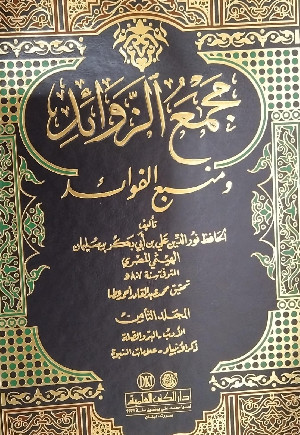 مجمع الزوائد
ومنبع الفوائد
تأليف
الحافظ نور الدين علي بن أبي بكر بن سليمان
الهيثمي المصري
المتوفى سنة ٨٠٧هـ
تحقيق محمد عبد القادر أحمد عطا
المجلد الثامن
الأدب - البر والصلة
ذكر الأنبياء - علامات النبوة
DKi
دار الكتب العلمية